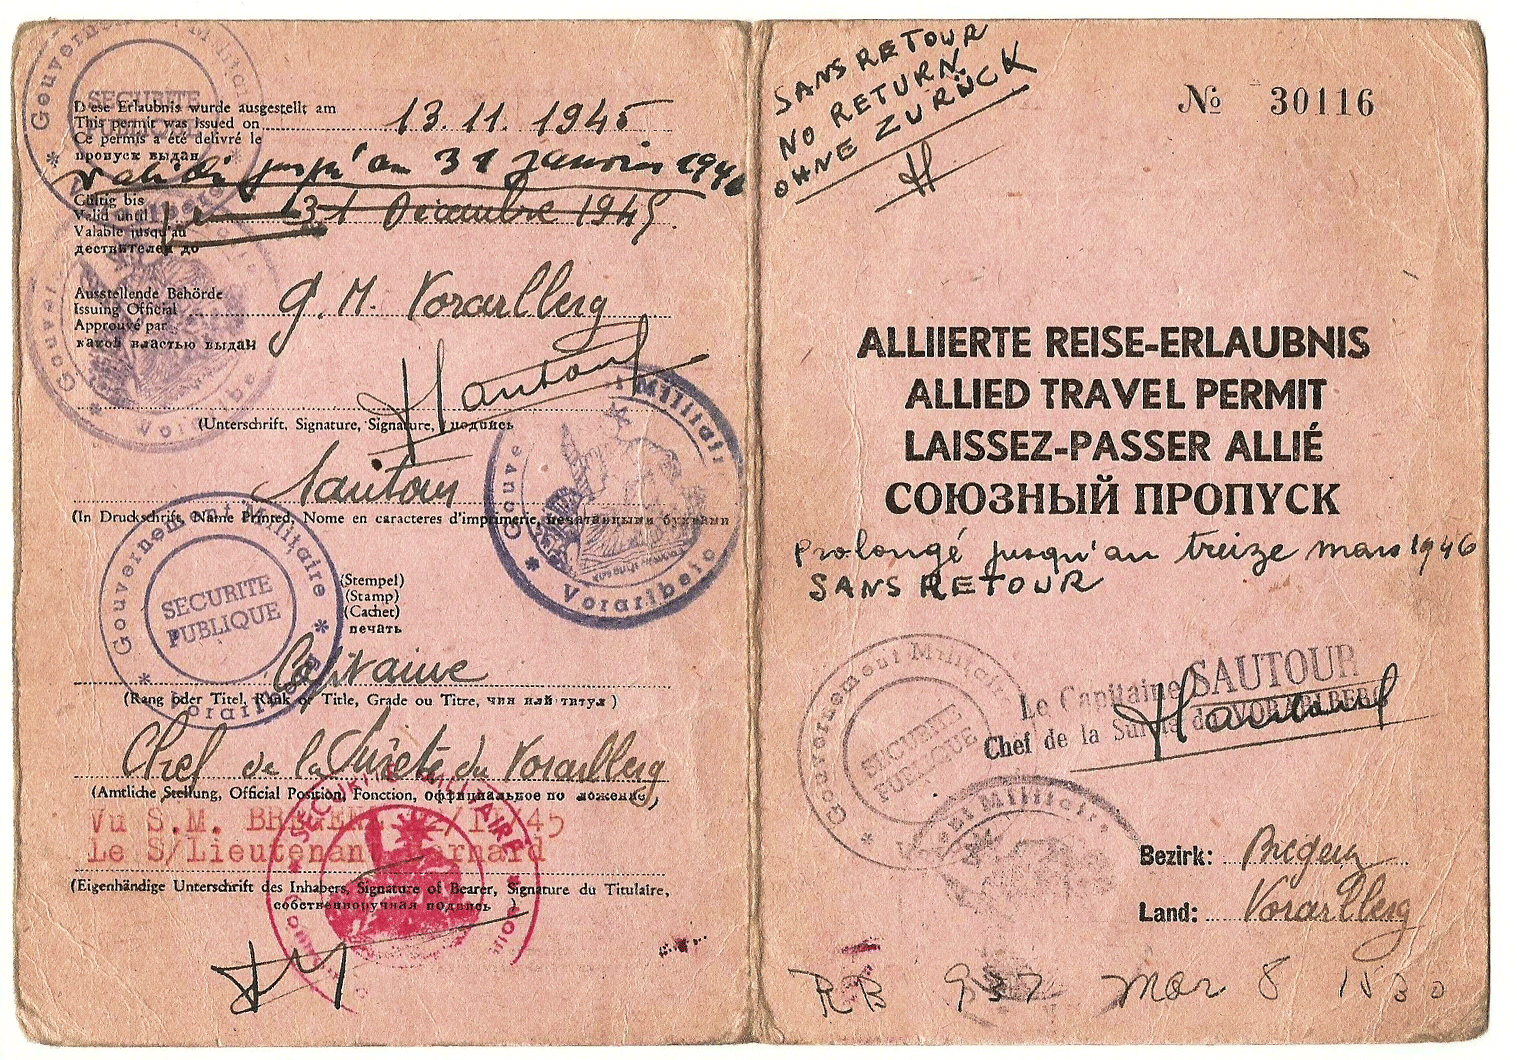 Diese Erlaubnis wurde ausgestellt am
This permit was issued on 13.11.1945
Ce permis a été delivré le
пропуск выдан
valide jusqu'au 31 Janvier 1946
Gültig bis
Valid until 31 Décembre 1945
Valable jusqu'au
дествителен до
Ausstellende Behörde
Issuing Official G. M. Vorarlberg
Approuvé par
какой властью выдан
Sautour
(Unterschrift, Signature, Signature, подпись
Sautour
(In Druckschrift, Name Printed, Nome en caracteres d'imprimerie, печатанными буквами
(Stempel)
(Stamp)
(Cachet)
печать
Capitaine
(Rang oder Titel, Rank or Title, Grade ou Titre, чин или титул)
Chef de la Sûreté du Vorarlberg
(Amtliche Stellung, Official Position, Fonction, официальное по ложение,)
Vu S.M. /45
Le S/Lieutenant
(Eigenhändige Unterschrift des Inhabers, Signature of Bearer, Signature du Titulaire,
собственноручная подпись)
Gouvernement Militaire
SECURITE
PUBLIQUE
Vorarlberg
Gouvernement Militaire
Vorarlberg
Gouvernement Militaire
SECURITE
PUBLIQUE
Vorarlberg
SECURITE MILITAIRE
SANS RETOUR
NO RETURN.
OHNE ZURÜCK
No 30116
ALLIIERTE REISE-ERLAUBNIS
ALLIED TRAVEL PERMIT
LAISSEZ-PASSER ALLIÉ
СОЮЗНЫЙ ПРОПУСК
Prolongé jusqu'au treize mars 1946
SANS RETOUR
Le Capitaine SAUTOUR
Chef de la Sureté du VORARLBERG
Sautour
Gouvernement Militaire
SECURITE
PUBLIQUE
Bezirk: Bregenz
Land: Vorarlberg
RB 937 Mar 8 1530